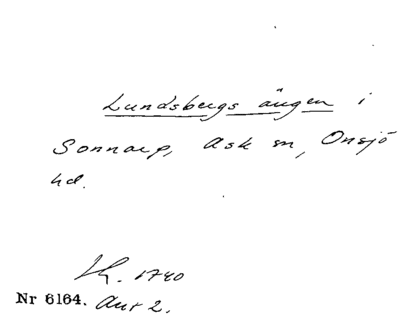 Lundsbergs ängen i
Sonnarp, Ask sn, Onsjö
hd.
Lh. 1740
Nr 6164. Avt 2.